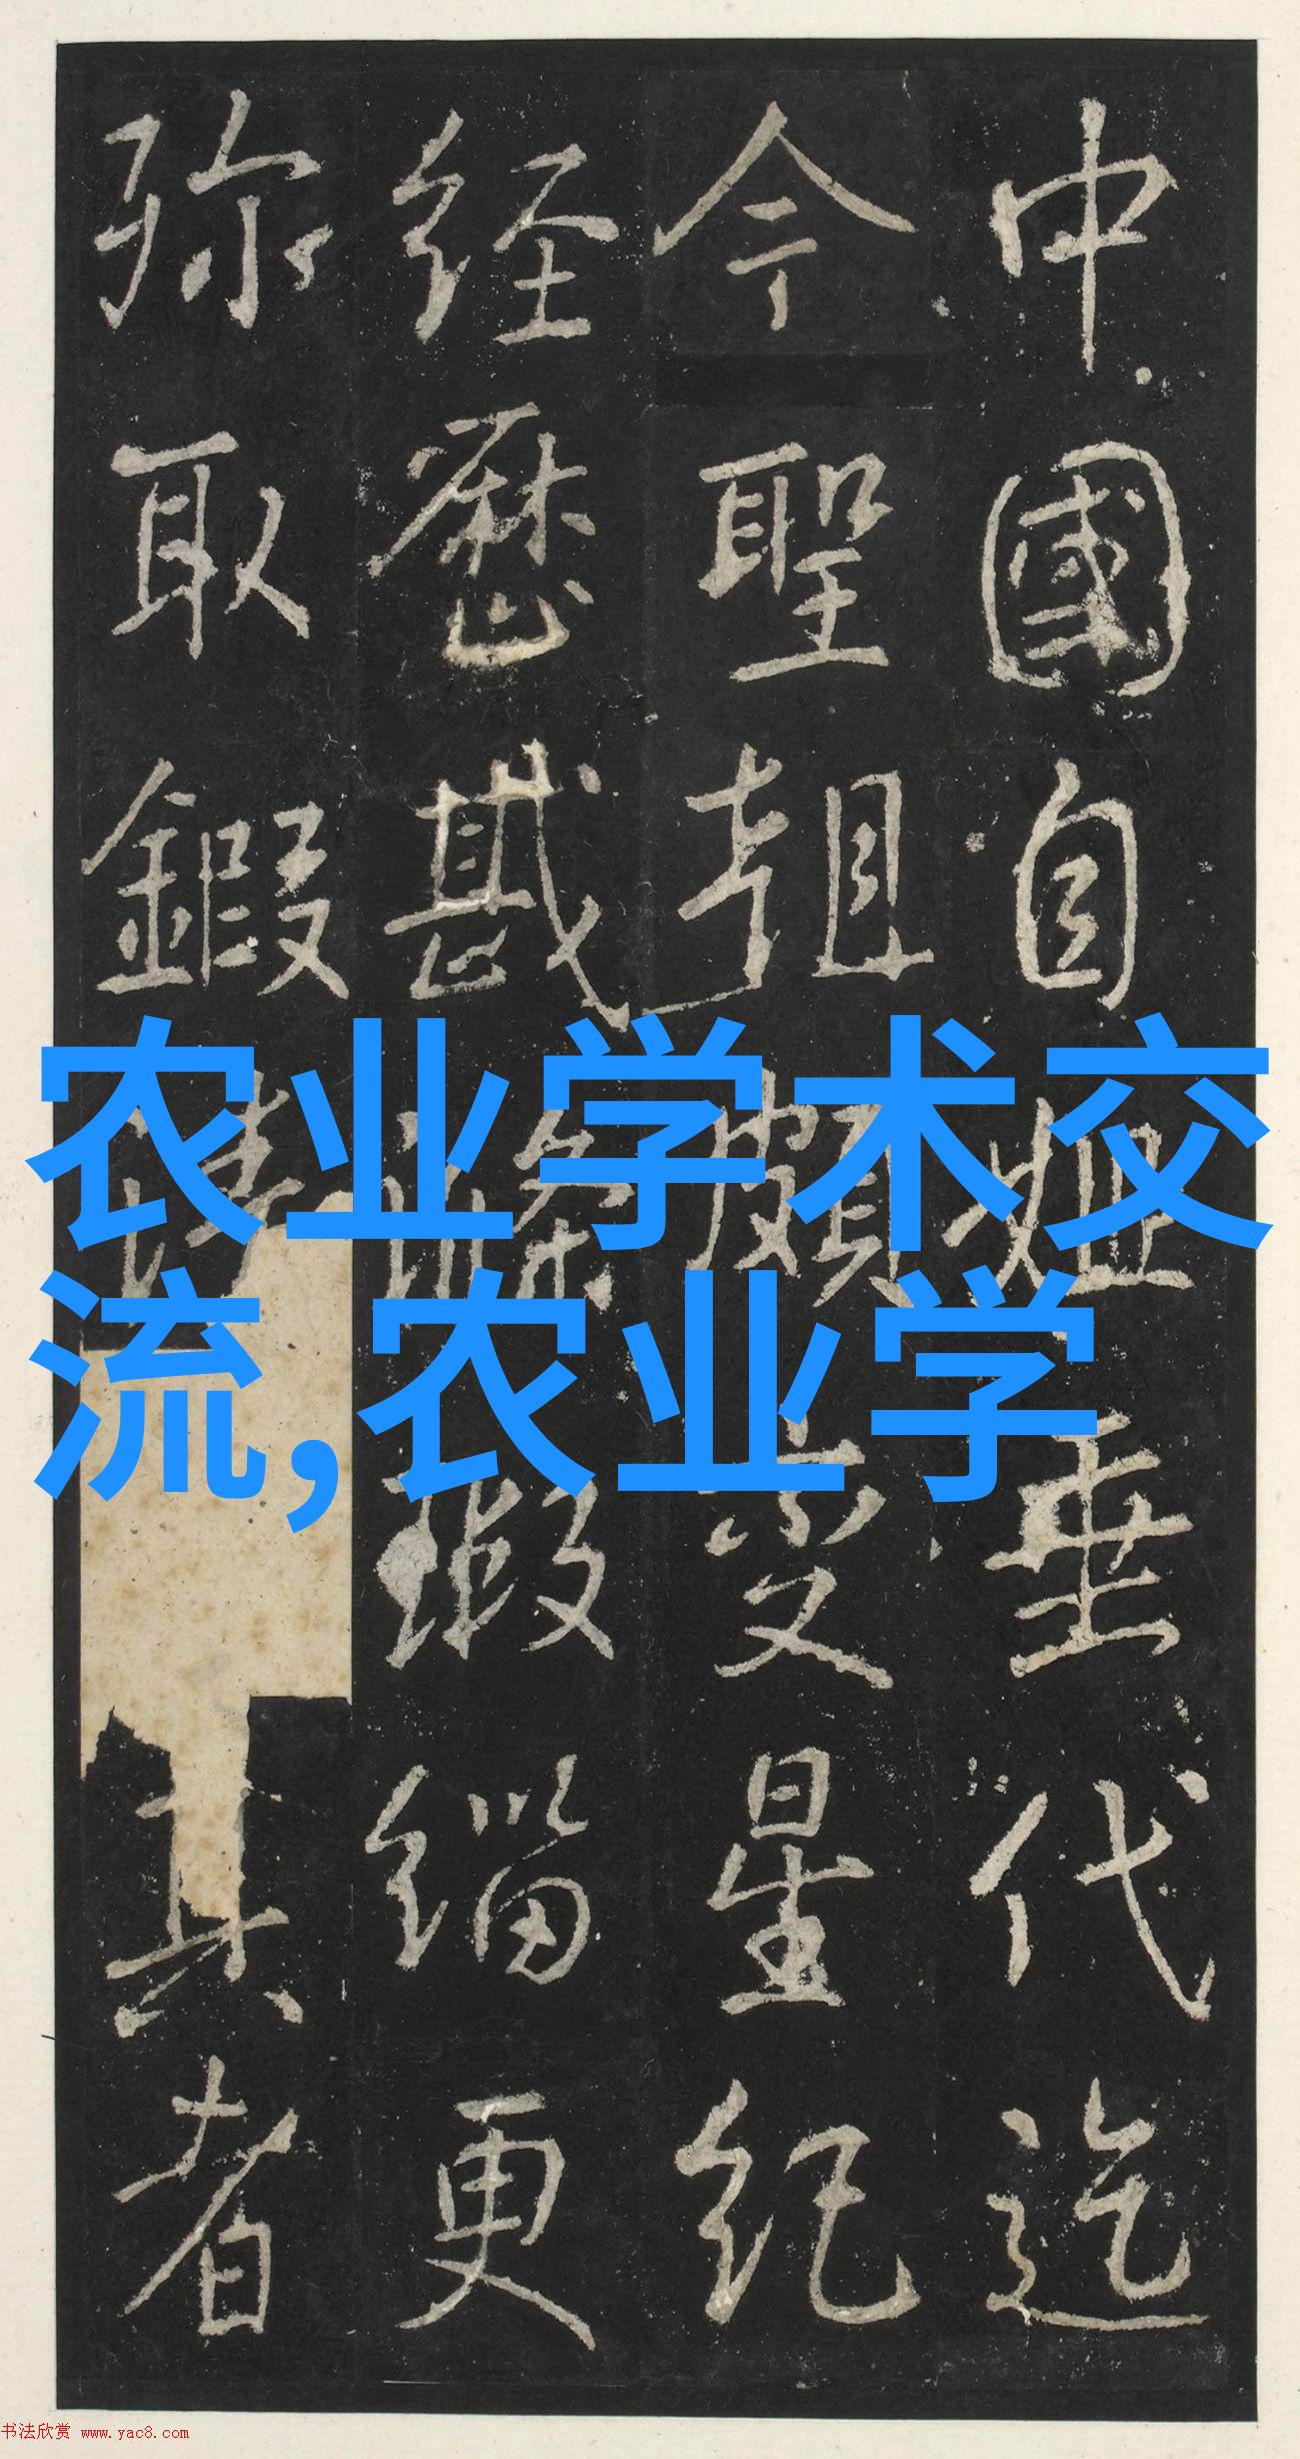 农业学术交
流,农业学
中國自姬垂代迄
今聖朝頗星紀
経歷瑕緇更
弥取其者
书法欣赏 www.yac8.com